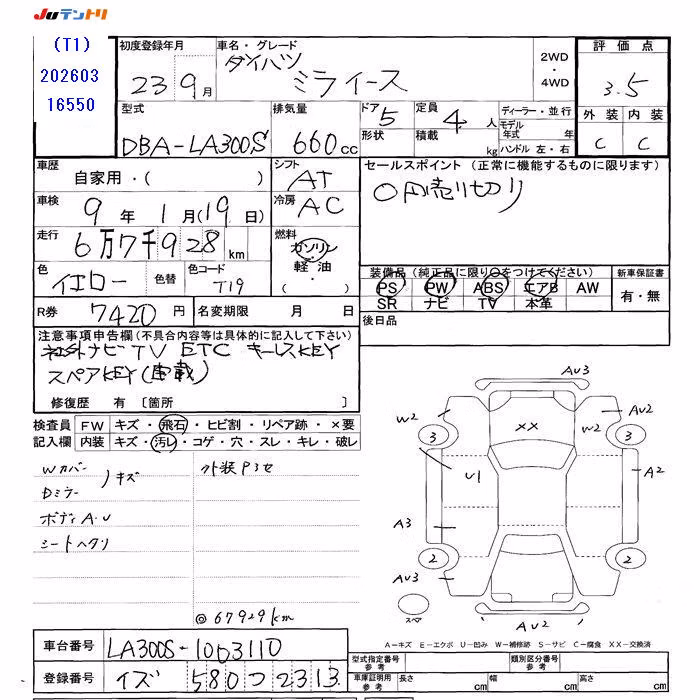 JUテントリ
(T1)
202603
16550
初度登録年月
23 9月
車名・グレード
ダイハツ
ミライース
2WD
・
4WD
評価点
3.5
外装 内装
C C
型式
DBA-LA300S
排気量
660cc
ドア 5
形状
定員 4人
積載 kg
ディーラー・並行
モデル年式 年
ハンドル 左・右
車歴
自家用・( )
シフト
AT
セールスポイント(正常に機能するものに限ります)
0円売り切り
車検
9年 1月(19日)
冷房
AC
走行
6万7千928km
燃料
ガソリン
・
軽油
・
( )
色
イエロー
色替
色コード
T19
装備品(純正品に限り○をつけてください)
PS PW ABS エアB AW
SR ナビ TV 本革
新車保証書
有・無
R券 7420円
名変期限 月 日
後日品
注意事項申告欄(不具合内容等は具体的に記入して下さい)
社外ナビ TV ETC キーレスKEY
スペアKEY(車載)
修復歴 有〔箇所 〕
検査員記入欄
FW キズ・飛石・ヒビ割・リペア跡・×要
内装 キズ・汚レ・コゲ・穴・スレ・キレ・破レ
Wカバー
Dミラー
キズ
外装P3セ
ボディA.U
シートヘタリ
◎67929km
AU3
W2
XX
W2
AU2
3
3
U1
A2
A3
2
2
AU3
スペア
AU2
A-キズ E-エクボ U-凹み W-補修跡 S-サビ C-腐食 XX-交換済
車台番号 LA300S-1003110
型式指定番号 参考
類別区分番号 参考
登録番号 イズ 580 つ 2313
車庫証明用 参考
長さ cm
幅 cm
高さ cm